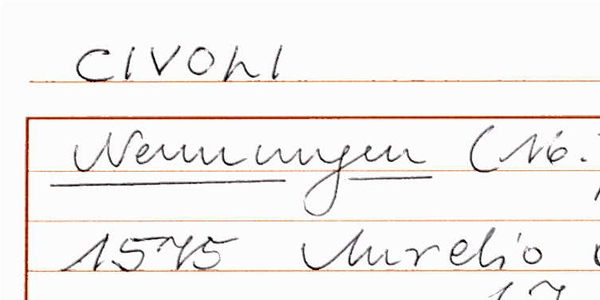 CIVOLI
Nennungen (16.
1575 Aurelio